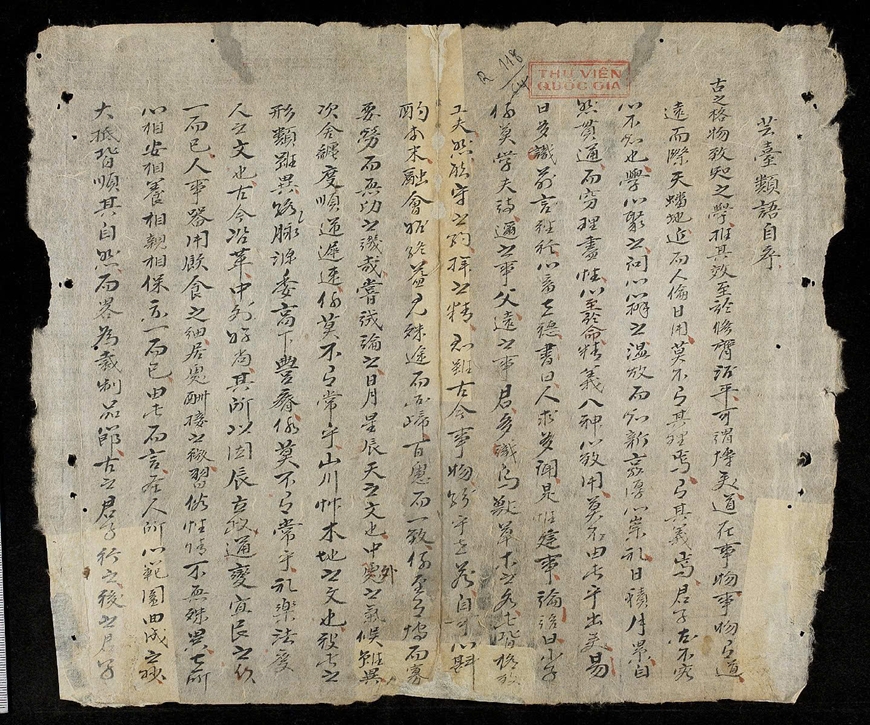 芸臺類語自序
古之格物致知之學推其效至於脩齊治平可謂博矣道在事物事物有道
遠而際天蟠地近而人倫日用莫不有其理焉有其義焉君子不容
心不知也學以聚之問以辨之溫故而知新敦厚以崇礼日積月累自
然貫通而窮理盡性以至於命精義入神以致用莫不由此乎出矣易
曰多識前言往行以畜其德書曰人求多聞是惟建事論語曰小子
何莫學夫詩邇之事父遠之事君多識鳥獸草木之名此皆格物
工夫然能守之約擇之精知古今事物乎自可以斟
酌本末融會始終並見殊途而同歸百慮而一致何至有博而寡
要勞而無功之譏哉嘗試論之日月星辰天之文也中外之氣候雖異
次舍躔度順逆遲速何莫不有常乎山川艸木地之文也彼此之
形類雖異條脉源委高下豐瘠何莫不有常乎礼樂法度
人之文也古今沿革中外好尚其所以因辰立政通變宜民之
一而已人事器用飲食之細居處酬接之微習俗性情不無殊異其所
以相安相養相親相保亦一而已由此而言在人所以範圍曲成之
大抵皆順其自然而畧為裁制品節古之君子行之後之君子
R 118
THƯ VIỆN
QUỐC GIA